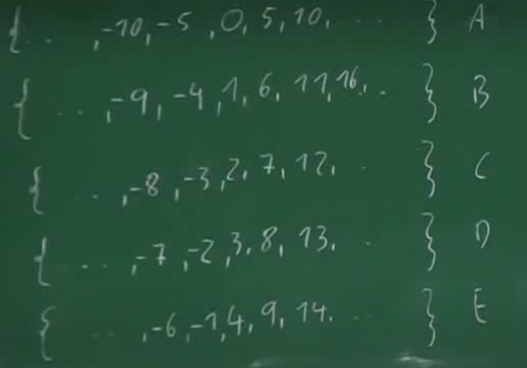 { .. ,-10,-5 ,0,5,10,... } A
{ ... ,-9,-4,1,6,11,16,.. } B
{ ... ,-8,-3,2,7,12,.. } C
{ ... ,-7,-2,3,8,13,.. } D
{ ... ,-6,-1,4,9,14.... } E